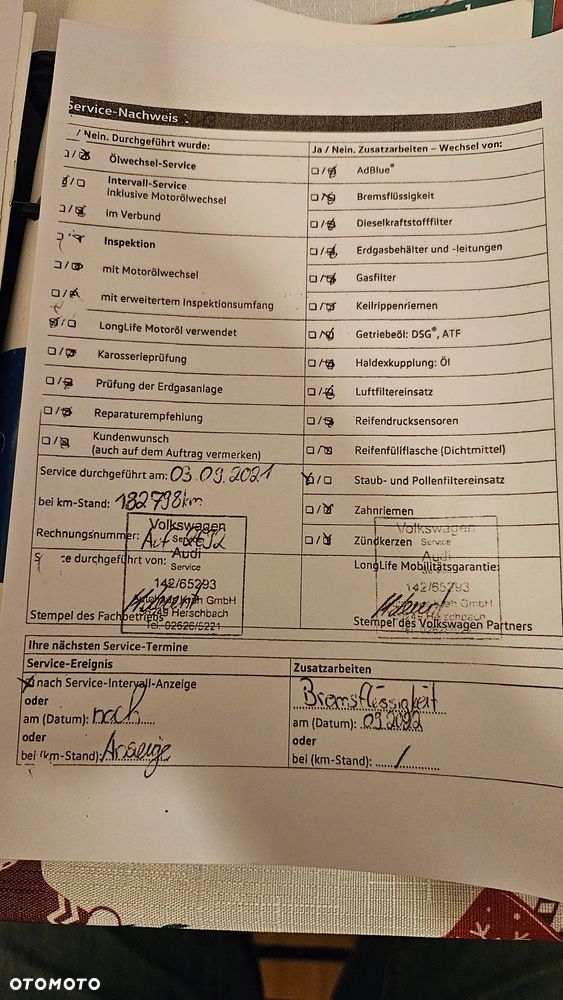 Service-Nachweis
/ Nein. Durchgeführt wurde:
Ölwechsel-Service
Intervall-Service
inklusive Motorölwechsel
im Verbund
Inspektion
mit Motorölwechsel
mit erweitertem Inspektionsumfang
LongLife Motoröl verwendet
Karosserieprüfung
Prüfung der Erdgasanlage
Reparaturempfehlung
Kundenwunsch
(auch auf dem Auftrag vermerken)
Service durchgeführt am: 03.09.2021
bei km-Stand: 182798km
Rechnungsnummer:
durchgeführt von:
Volkswagen
Service
Audi
Service
142/65293
GmbH
Herschbach
Tel. 02626/5221
Stempel des Fachbetriebs
Ja / Nein. Zusatzarbeiten – Wechsel von:
AdBlue®
Bremsflüssigkeit
Dieselkraftstofffilter
Erdgasbehälter und -leitungen
Gasfilter
Keilrippenriemen
Getriebeöl: DSG®, ATF
Haldexkupplung: Öl
Luftfiltereinsatz
Reifendrucksensoren
Reifenfüllflasche (Dichtmittel)
Staub- und Pollenfiltereinsatz
Zahnriemen
Zündkerzen
LongLife Mobilitätsgarantie:
Volkswagen
Service
Audi
Service
142/65293
GmbH
Herschbach
Stempel des Volkswagen Partners
Ihre nächsten Service-Termine
Service-Ereignis
nach Service-Intervall-Anzeige
oder
am (Datum): nach
oder
bei (km-Stand): Anzeige
Zusatzarbeiten
Bremsflüssigkeit
am (Datum):
oder
bei (km-Stand): /
OTOMOTO